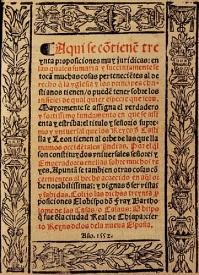 Aqui se cõtienẽ tre
ynta proposiciones muy juridicas: en
las quales sumaria y succintamente se
toca muchas cosas pertenecietes al de
recho q̃ la yglesia y los principes chri
stianos tienen/o puedẽ tener sobre los
infieles de qual quier especie que sean.
Mayormente se assigna el verdadero
y fortissimo fundamento en que se assi
enta y estriba: el titulo y señorio supre
mo y universal que los Reyes d̃ Casti
lla y Leon tienen al orbe de las que lla
mamos occidentales yndias. Por el q̃l
son constituydos universales señores y
Emperadores en ellas sobre muchos re
yes. Apuntã se tambien otras cosas con
cernientes al hecho acaecido en aq̃l or
be notabilissimas: y dignas d̃ ser vistas
y sabidas. Colijo las dichas treynta p̃
posiciones El obispo dõ fray Bartho
lome de las Casas/o Casaus: Obispo
q̃ fue dla ciudad Real de Chiapa: cier
to Reyno de los de la nueva España.
Año. 1552